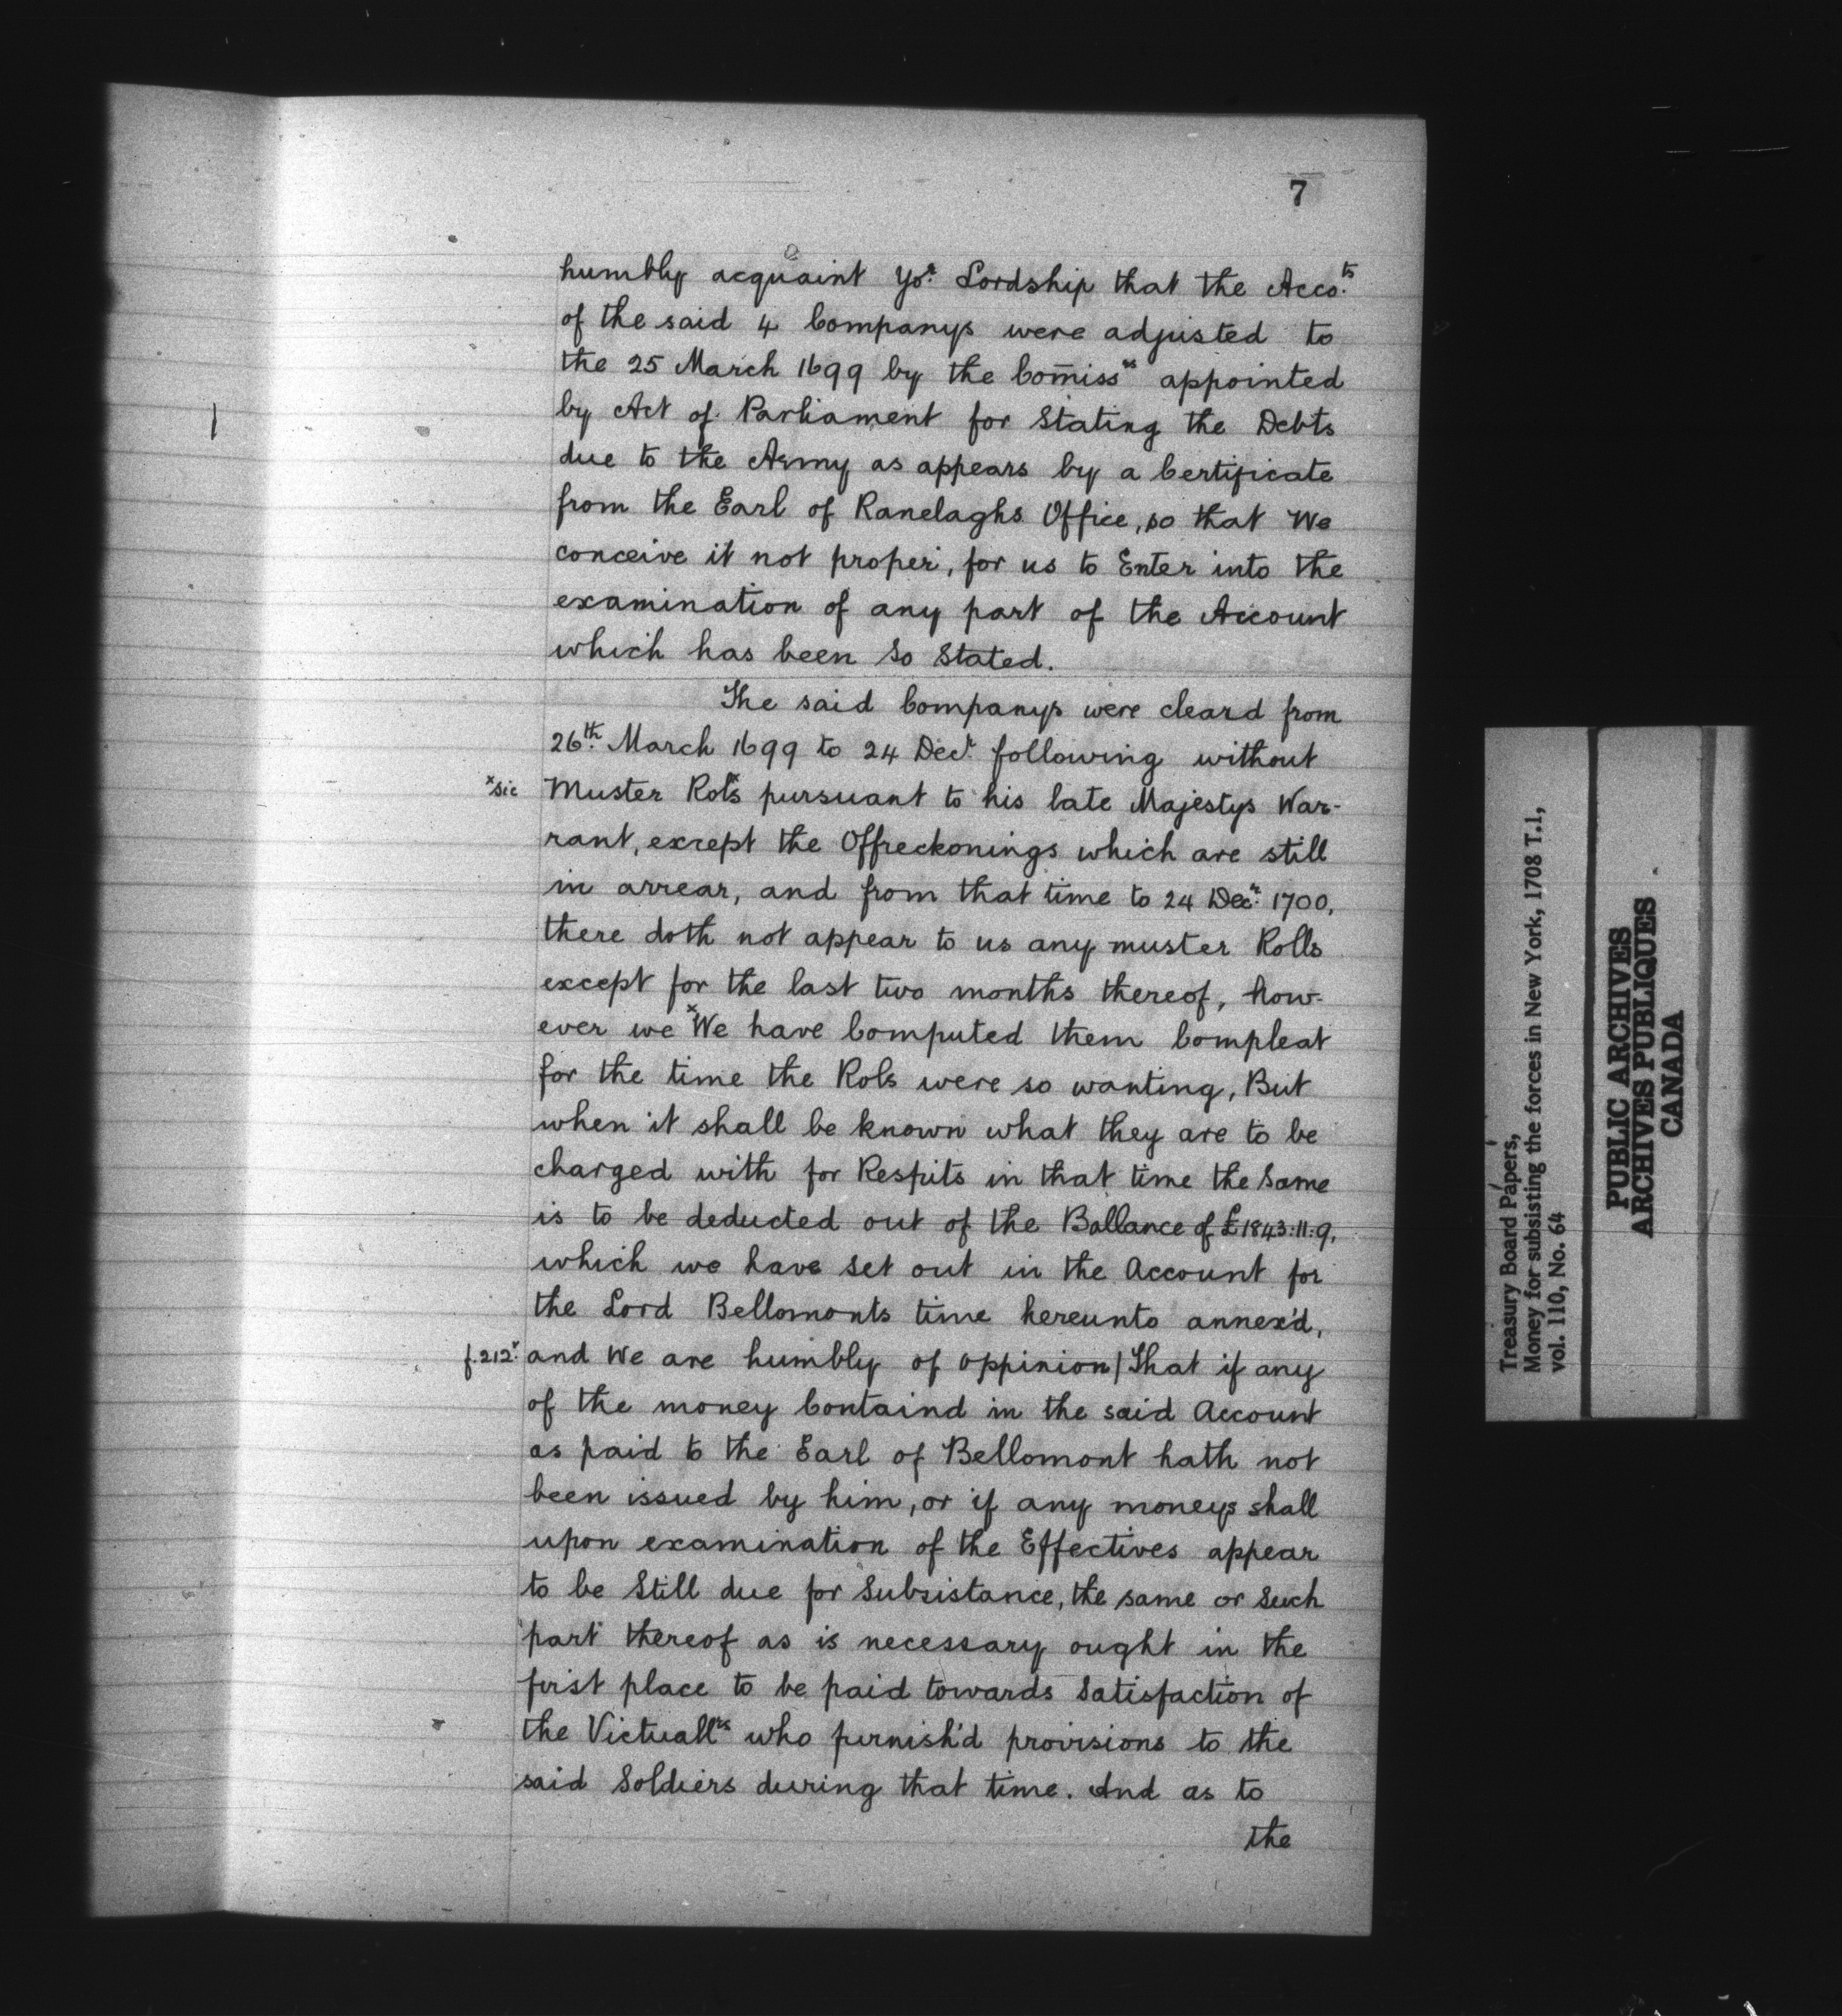 7
humbly acquaint Yor. Lordship that the Acco.ts
of the said 4 Companys were adjusted to
the 25 March 1699 by the Com̄issrs appointed
by Act of Parliament for Stating the Debts
due to the Army as appears by a Certificate
from the Earl of Ranelaghs Office, so that We
conceive it not proper, for us to Enter into the
examination of any part of the Account
which has been So Stated.
The said Companys were cleard from
26th. March 1699 to 24 Decr. following without
x sic Muster Rolsx pursuant to his late Majestys War-
rant, except the Offreckonings which are still
in arrear, and from that time to 24 Decr. 1700,
there doth not appear to us any muster Rolls
except for the last two months thereof, how-
ever we xWe have Computed them Compleat
for the time the Rols were so wanting, But
when it shall be known what they are to be
charged with for Respits in that time the Same
is to be deducted out of the Ballance of £1843:11:9,
which we have Set out in the Account for
the Lord Bellomonts time hereunto annex'd,
f.212v. and We are humbly of oppinion/That if any
of the money Containd in the said Account
as paid to the Earl of Bellomont hath not
been issued by him, or if any moneys shall
upon examination of the Effectives appear
to be Still due for Subsistance, the same or Such
part thereof as is necessary ought in the
first place to be paid towards Satisfaction of
the Victuallrs who furnish'd provisions to the
said Soldiers during that time. And as to
the
Treasury Board Papers,
Money for subsisting the forces in New York, 1708 T.1,
vol. 110, No. 64
PUBLIC ARCHIVES
ARCHIVES PUBLIQUES
CANADA